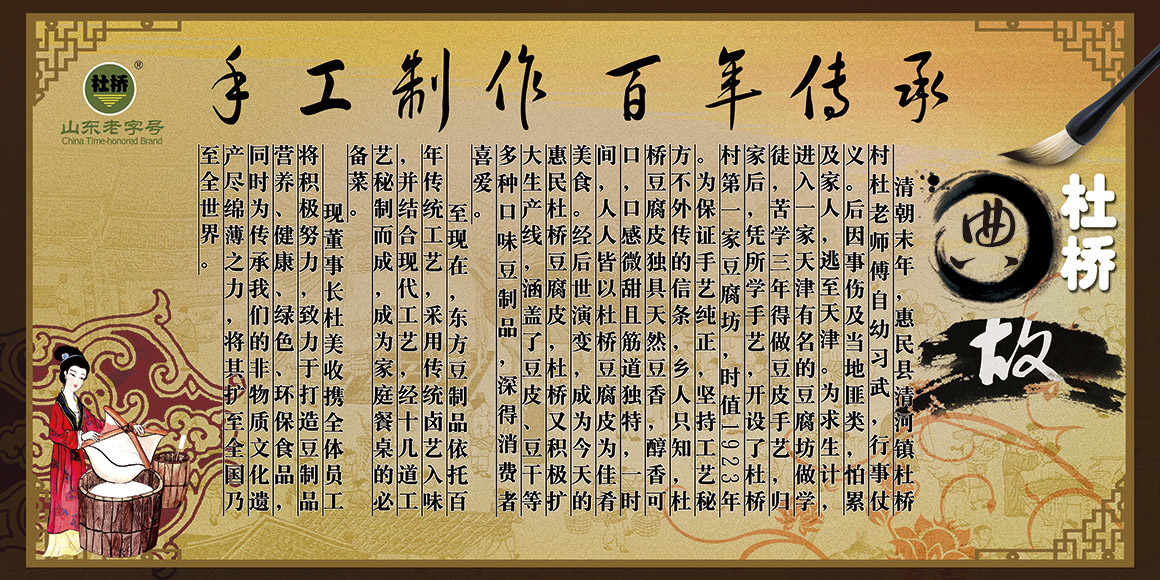 手工制作 百年传承
杜桥
®
山东老字号
China Time-honored Brand
杜桥
典故
清朝末年，惠民县清河镇杜桥
村杜老师傅自幼习武，行事仗
义。后因事伤及当地匪类，怕累
及家人，逃至天津。为求生计，
进入一家天津有名的豆腐坊做学
徒，苦学三年得做豆皮手艺，归
家后，凭所学手艺，开设了杜桥
村第一家豆腐坊，时值1923年
。为保证手艺纯正，坚持工艺秘
方不外传的信条，乡人只知，杜
桥豆腐皮独具天然豆香，醇香可
口，口感微甜且筋道独特，一时
间，人人皆以杜桥豆腐皮为佳肴
美食。经后世演变，成为今天的
惠民杜桥豆腐皮，杜桥又积极扩
大生产线，涵盖了豆皮、豆干等
多种口味豆制品，深得消费者
喜爱。
至现在，东方豆制品依托百
年传统工艺，采用传统卤艺入味
，并结合现代工艺，经十几道工
艺秘制而成，成为家庭餐桌的必
备菜。
现董事长杜美收携全体员工
将积极努力，致力于打造豆制品
营养、健康、绿色、环保食品，
同时为传承我们的非物质文化遗
产尽绵薄之力，将其扩至全国乃
至全世界。